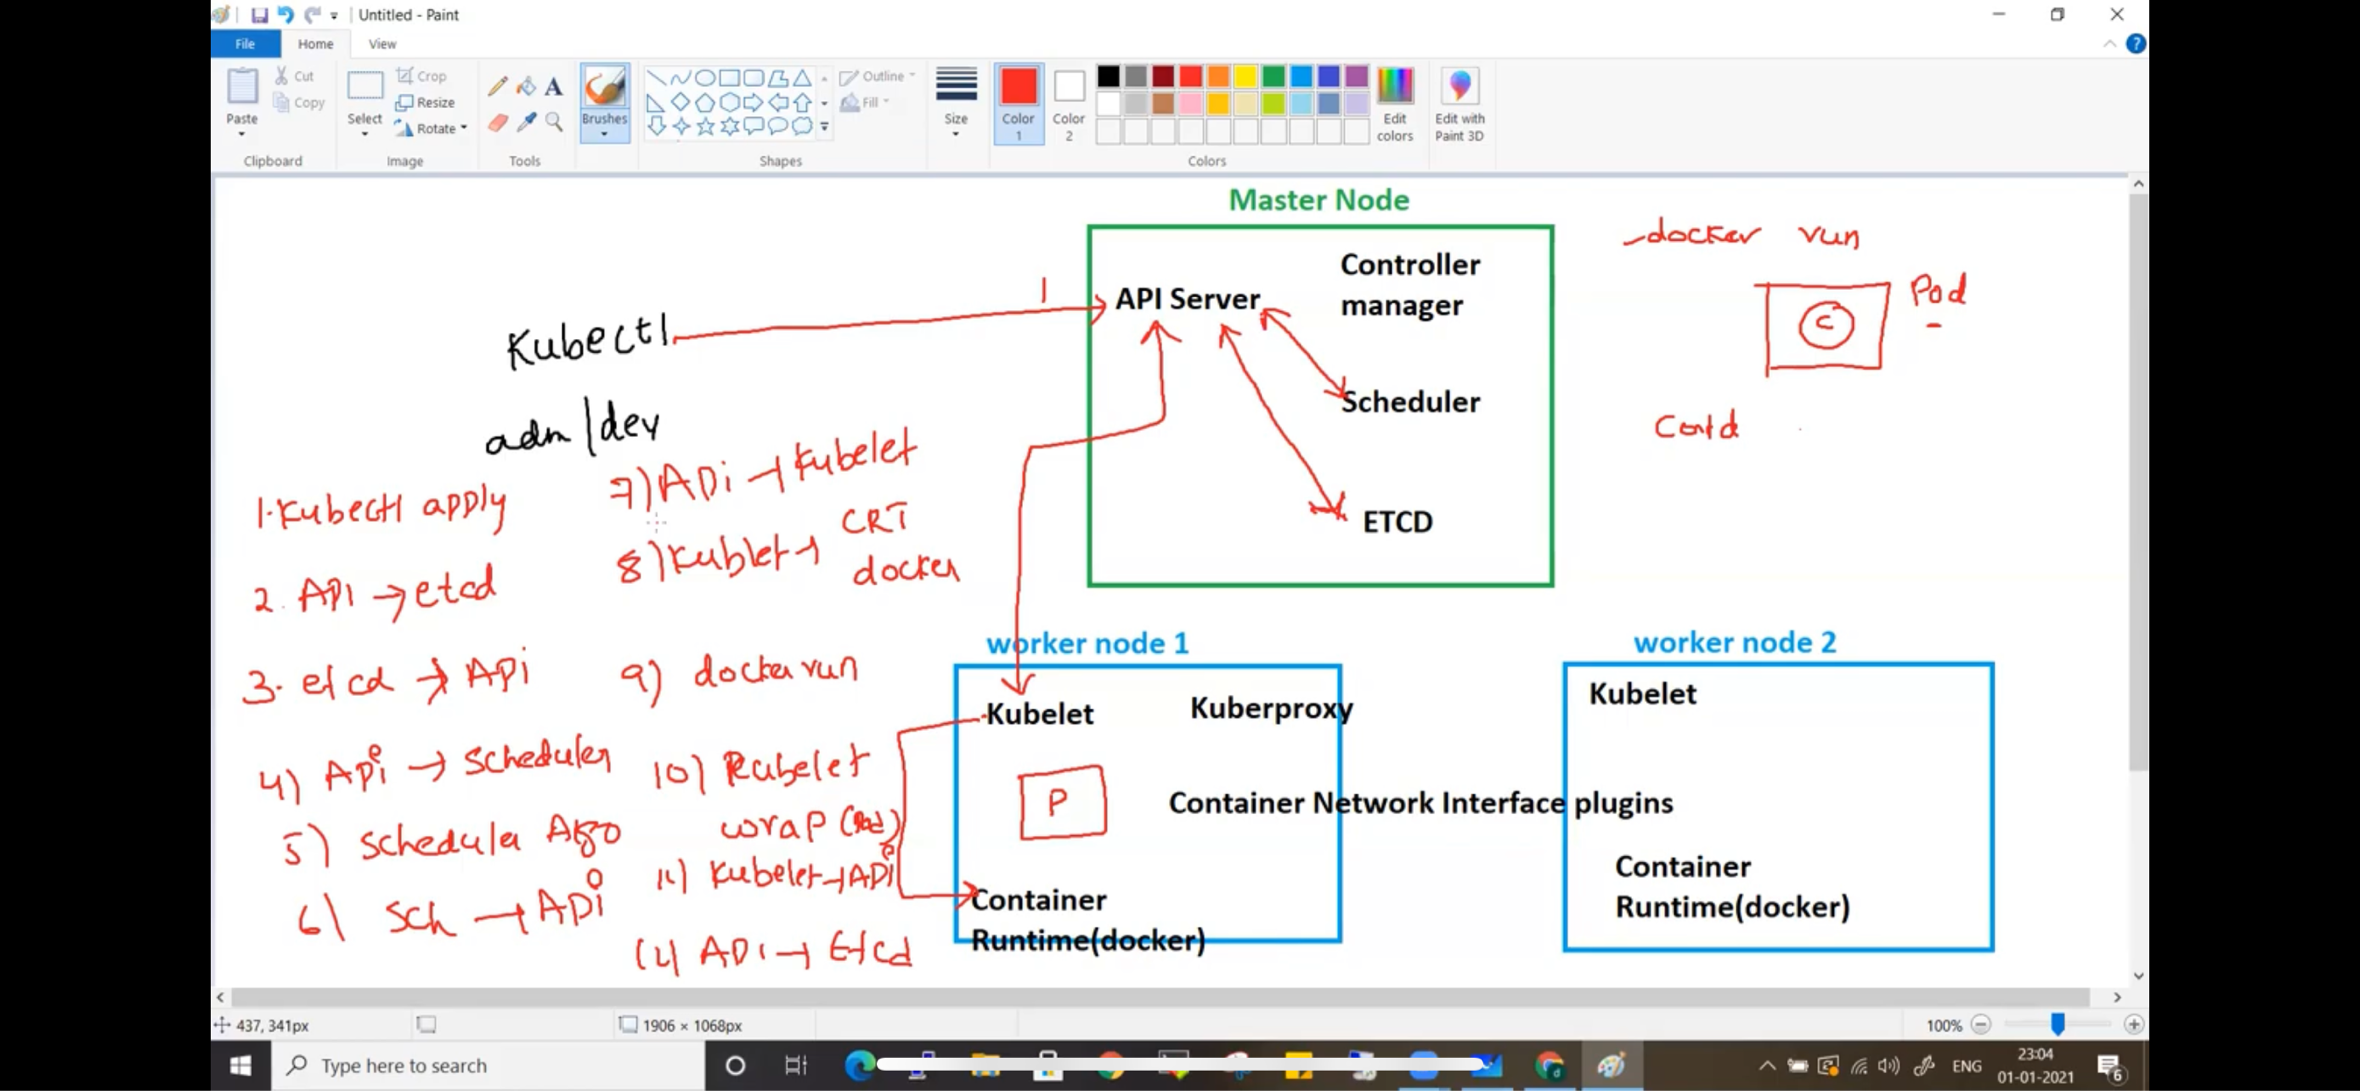 Untitled - Paint
File Home View
Paste
Cut
Copy
Clipboard
Select
Crop
Resize
Rotate
Image
Tools
Brushes
Shapes
Outline
Fill
Size
Color 1
Color 2
Edit colors
Edit with Paint 3D
Colors
Master Node
API Server
Controller manager
Scheduler
ETCD
docker run
Pod
C
Contd
1
Kubectl
adm/dev
1. Kubectl apply
2. API → etcd
3. etcd → API
4) Api → scheduler
5) scheduler Algo
6) Sch → API
7) API → Kubelet
8) Kublet → CRT
docker
9) docker run
10) Kubelet
wrap (Pod)
11) Kubelet → API
12) API → Etcd
worker node 1
Kubelet
Kuberproxy
P
Container Network Interface plugins
Container
Runtime(docker)
worker node 2
Kubelet
Container
Runtime(docker)
437, 341px
1906 × 1068px
100%
Type here to search
ENG
23:04
01-01-2021
6